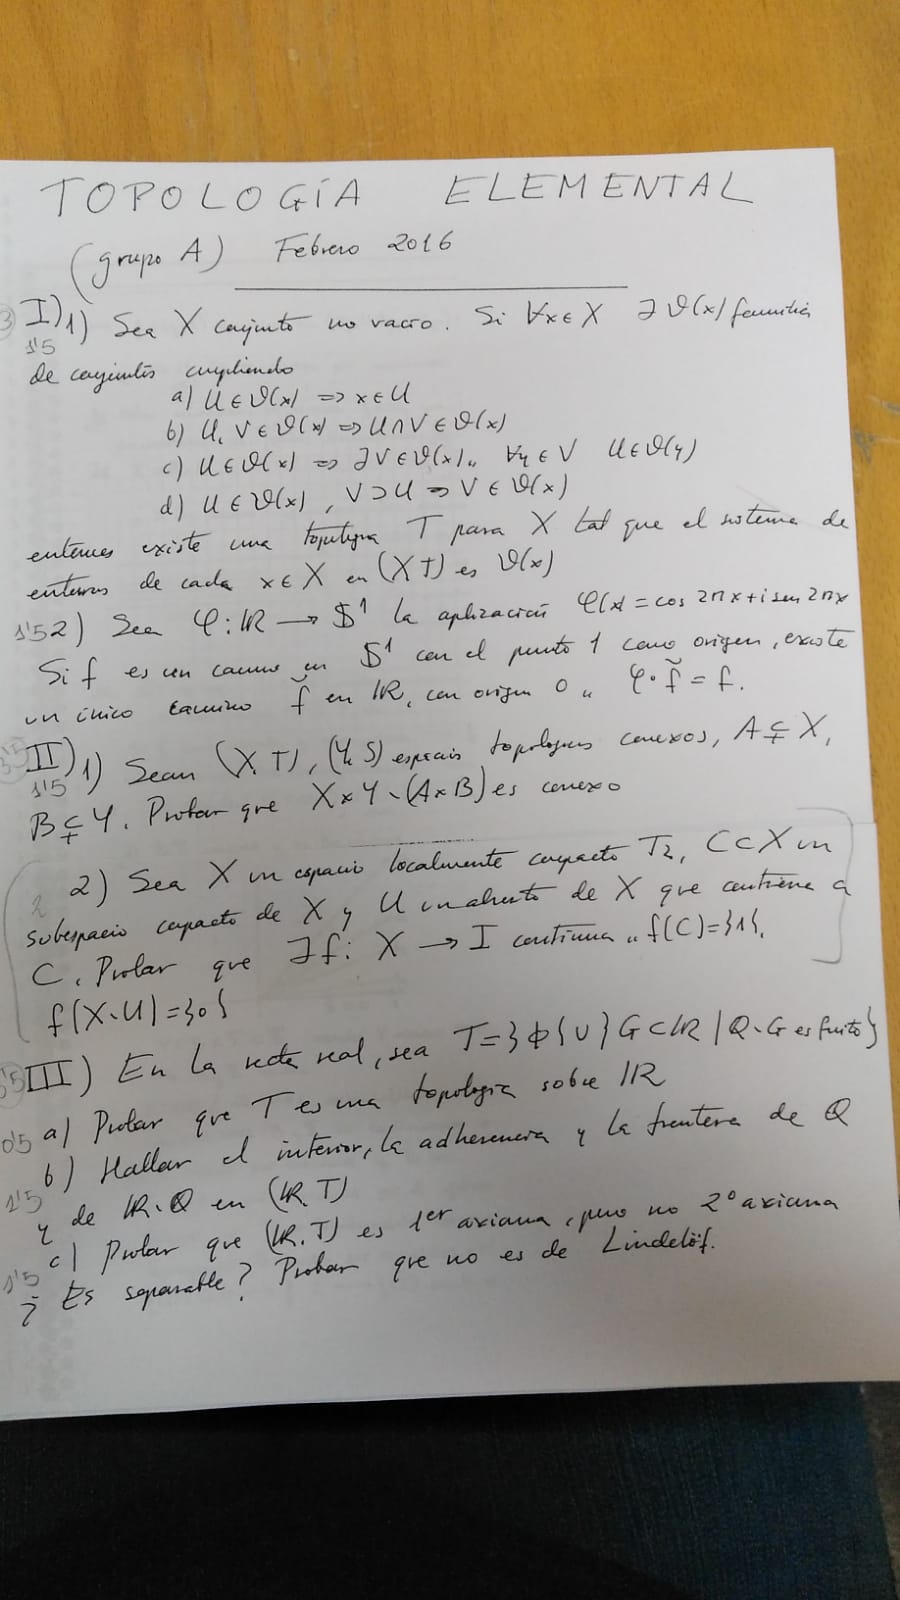 TOPOLOGÍA ELEMENTAL
(grupo A) Febrero 2016
3 I) 1) Sea X conjunto no vacío. Si ∀x∈X ∃ϑ(x) familia
1'5 de conjuntos cumpliendo
a) U∈ϑ(x) ⇒ x∈U
b) U, V∈ϑ(x) ⇒ U∩V∈ϑ(x)
c) U∈ϑ(x) ⇒ ∃V∈ϑ(x) ,, ∀y∈V U∈ϑ(y)
d) U∈ϑ(x), V⊃U ⇒ V∈ϑ(x)
entonces existe una topología T para X tal que el sistema de
entornos de cada x∈X en (X,T) es ϑ(x)
1'5 2) Sea φ: ℝ → $¹ la aplicación φ(x) = cos 2πx + i sen 2πx
Si f es un camino en $¹ con el punto 1 como origen, existe
un único camino f̃ en ℝ, con origen 0 ,, φ∘f̃ = f.
3'5 II) 1) Sean (X,T), (Y,S) espacios topológicos conexos, A⊊X,
1'5 B⊊Y. Probar que X×Y∖(A×B) es conexo
2 2) Sea X un espacio localmente compacto T₂, C⊂X un
subespacio compacto de X y U un abierto de X que contiene a
C. Probar que ∃f: X → I continua ,, f(C)={1},
f(X∖U)={0}
3'5 III) En la recta real, sea T={Φ}∪{G⊂ℝ | Q∖G es finito}
0'5 a) Probar que T es una topología sobre ℝ
b) Hallar el interior, la adherencia y la frontera de Q
1'5 y de ℝ∖Q en (ℝ,T)
c) Probar que (ℝ,T) es 1er axioma, pero no 2º axioma
1'5 ¿Es separable? Probar que no es de Lindelöf.